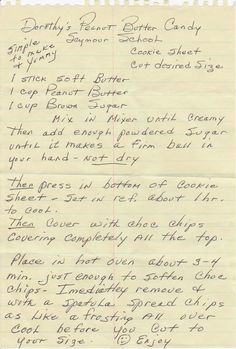 Dorothy's Peanut Butter Candy
Seymour School
Simple to make & yummy
Cookie Sheet
Cut desired Size
1 stick soft Butter
1 cup Peanut Butter
1 cup Brown Sugar
Mix in Mixer until Creamy
Then add enough powdered Sugar
until it makes a firm ball in
your hand - Not dry
Then press in bottom of Cookie
Sheet - Set in ref. about 1 hr.
to cool.
Then Cover with choc chips
Covering Completely All the top.
Place in hot oven about 3-4
min. just enough to soften choc
chips - Imediatley remove &
with a spatula spread chips
as like a frosting All over
Cool before you cut to
your size. Enjoy